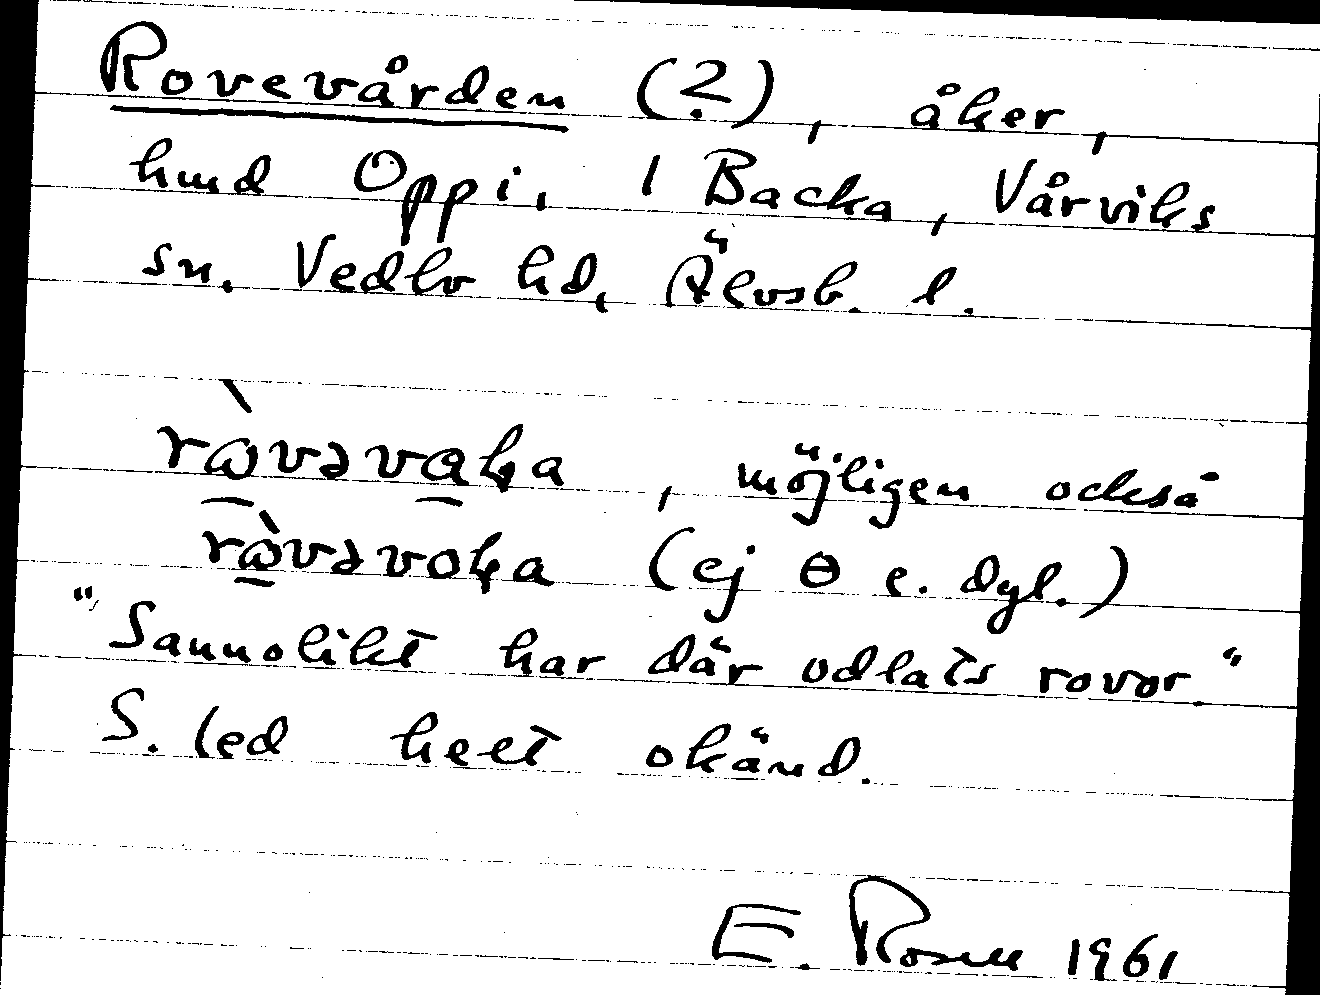 Rovevården (?), åker,
hmd Oppi, 1 Backa, Vårviks
sn. Vedbo hd, Älvsb. l.
, möjligen också
(ej ɵ e. dyl.)
"Sannolikt har där odlats rovor."
S. led helt okänd.
E. Rosell 1961